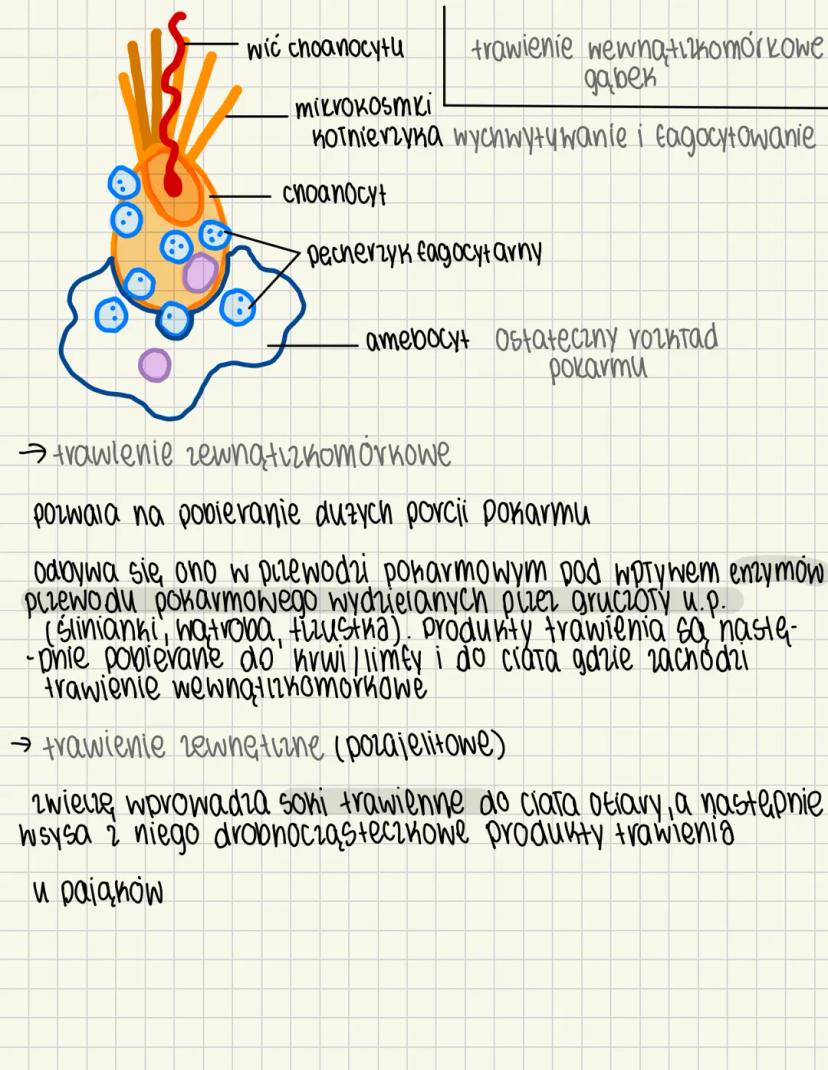 wić choanocytu
trawienie wewnątrzkomórkowe
gąbek
mikrokosmki
kołnierzyka
wychwytywanie i fagocytowanie
choanocyt
pęcherzyk fagocytarny
amebocyt
ostateczny rozkład
pokarmu
→ trawienie zewnątrzkomórkowe
pozwala na pobieranie dużych porcji pokarmu
odbywa się ono w przewodzi pokarmowym pod wpływem enzymów
przewodu pokarmowego wydzielanych przez gruczoły u.p.
(ślinianki, wątroba, trzustka). produkty trawienia są nastę-
-pnie pobierane do krwi/limfy i do ciała gdzie zachodzi
trawienie wewnątrzkomórkowe
→ trawienie zewnętrzne (pozajelitowe)
zwierzę wprowadza soki trawienne do ciała ofiary, a następnie
wsysa z niego drobnocząsteczkowe produkty trawienia
u pająków